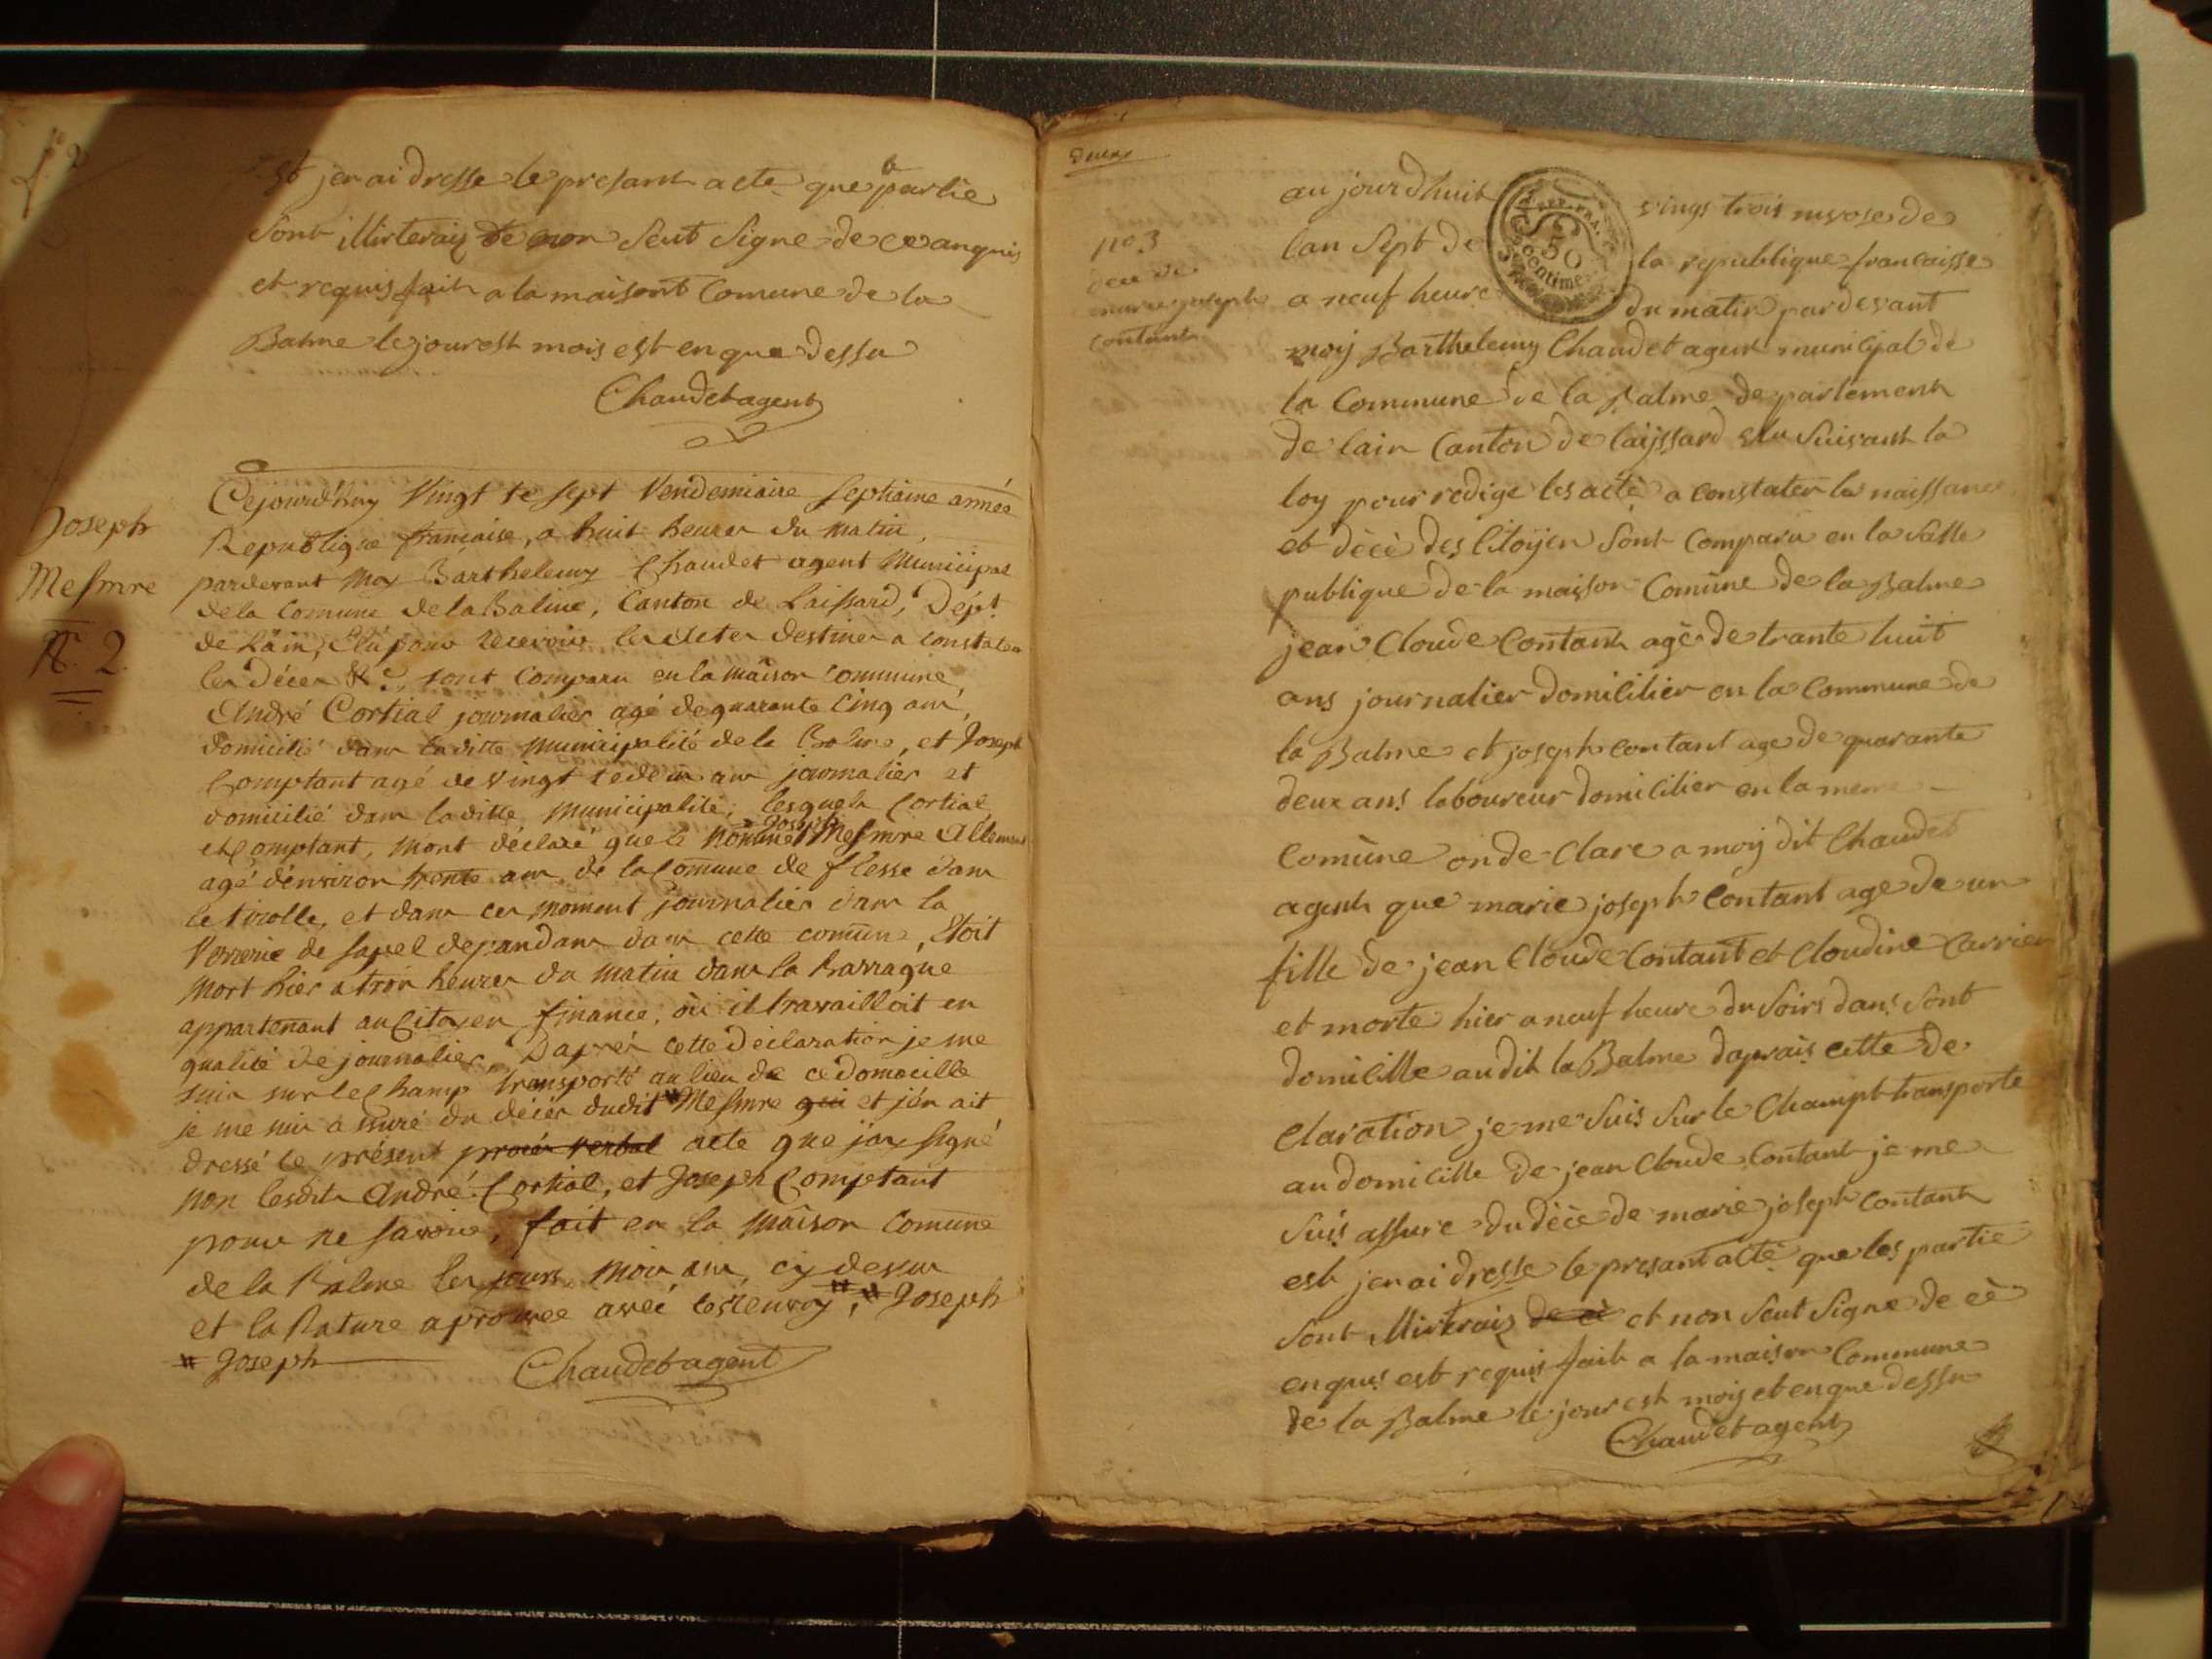 Et jen ai dresse le presant acte que partie
sont Mirterais de non seut signe de ce anquis
et requis fait a la maisont Comune de la
Balme le jour est mois est en que dessu
Chaudet agent
Joseph
Mesmre
N°. 2.
Cejourd'huy Vingt te sept Vendemiaire septiaine année
Republique francaise, a huit heures du matin,
pardevant Moy Barthelemy Chaudet agent Municipal
de la Comune de la Balme, Canton de Laissard, Dépt
de Lain, Elu pour recevoir les actes destinés a constater
les Déces &c, sont comparu en la maison commune,
André Cortial journalier agé de quarante Cinq ans,
domicilié dans laditte Municipalité de la Balme, et Joseph
Comptant agé de vingt te deux ans journalier et
domicilié dans laditte Municipalité; lesquels Cortial,
et Comptant, mont déclaré que le Nommé Joseph Mesmre Allemand
agé d'environ trente ans, de la Comune de flesse dans
le tirolle, et dans ces moment journalier dans la
Verrerie de Japel depandans dans cette comune, Etoit
Mort hier a trois heures du matin dans la barraque
appartenant au Citoyen finance, où il travailloit en
qualité de journalier, Daprés cette déclaration je me
suis sur le Champ transporté au lieu de ce domicille
je me suis assuré du décés dudit # Mesmre qui et jén ait
dressé le présent procés verbal acte que j'ay signé
non lesdits André Cortial, et Joseph Comptant
pour ne savoir, fait en la Maison Comune
de la Balme les jours Mois ans, cy dessus
et la Rature aprouvée avec les renvoy #, # Joseph
# Joseph
Chaudet agent
Deux
no 3
dece de
marie joseph
contant
au jourdhuit vings trois nivose de
lan Sept de la republique francaisse
a neuf heure du matin pardevant
moy Barthelemy Chaudet agent municipal de
la Commune de la Balme departement
de lain Canton de laijssard elu suivant la
loy pour redige les acte a constater la naissance
et décè des Citoÿen sont Comparu en la salle
publique de la maison Comùne de la Balme
jean Cloude Contant agè de trante huit
ans journalier domicilier en la Commune de
la Balme et joseph contant age de quarante
deux ans laboureur domicilier en la meme
Comùne on de-clare a moy dit Chaudet
agent que marie joseph Contant age de un
fille de jean Cloude Contant et Cloudine Carrier
et morte hier a neuf heure du soirs dans sont
domicille audit la Balme daprais cette de
claration je me suis sur le Champt transporte
au domicille de jean Cloude Contant je me
suis assure du décè de marie joseph Contant
est jen ai dresse le presant acte que les partie
sont Mirterais de cè et non seut signe de cè
enquis est requis fait a la maison Commune
de la Balme le jour est mois et en que dessu
Chaudet agent
REP. FRA.
50
centimes